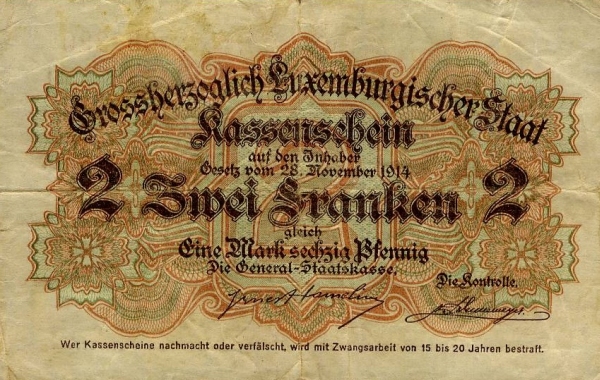 Grossherzoglich Luxemburgischer Staat
Kassenschein
auf den Inhaber
Gesetz vom 28. November 1914
2 Zwei Franken 2
gleich
Eine Mark sechzig Pfennig
Die General-Staatskasse.
Die Kontrolle.
Wer Kassenscheine nachmacht oder verfälscht, wird mit Zwangsarbeit von 15 bis 20 Jahren bestraft.